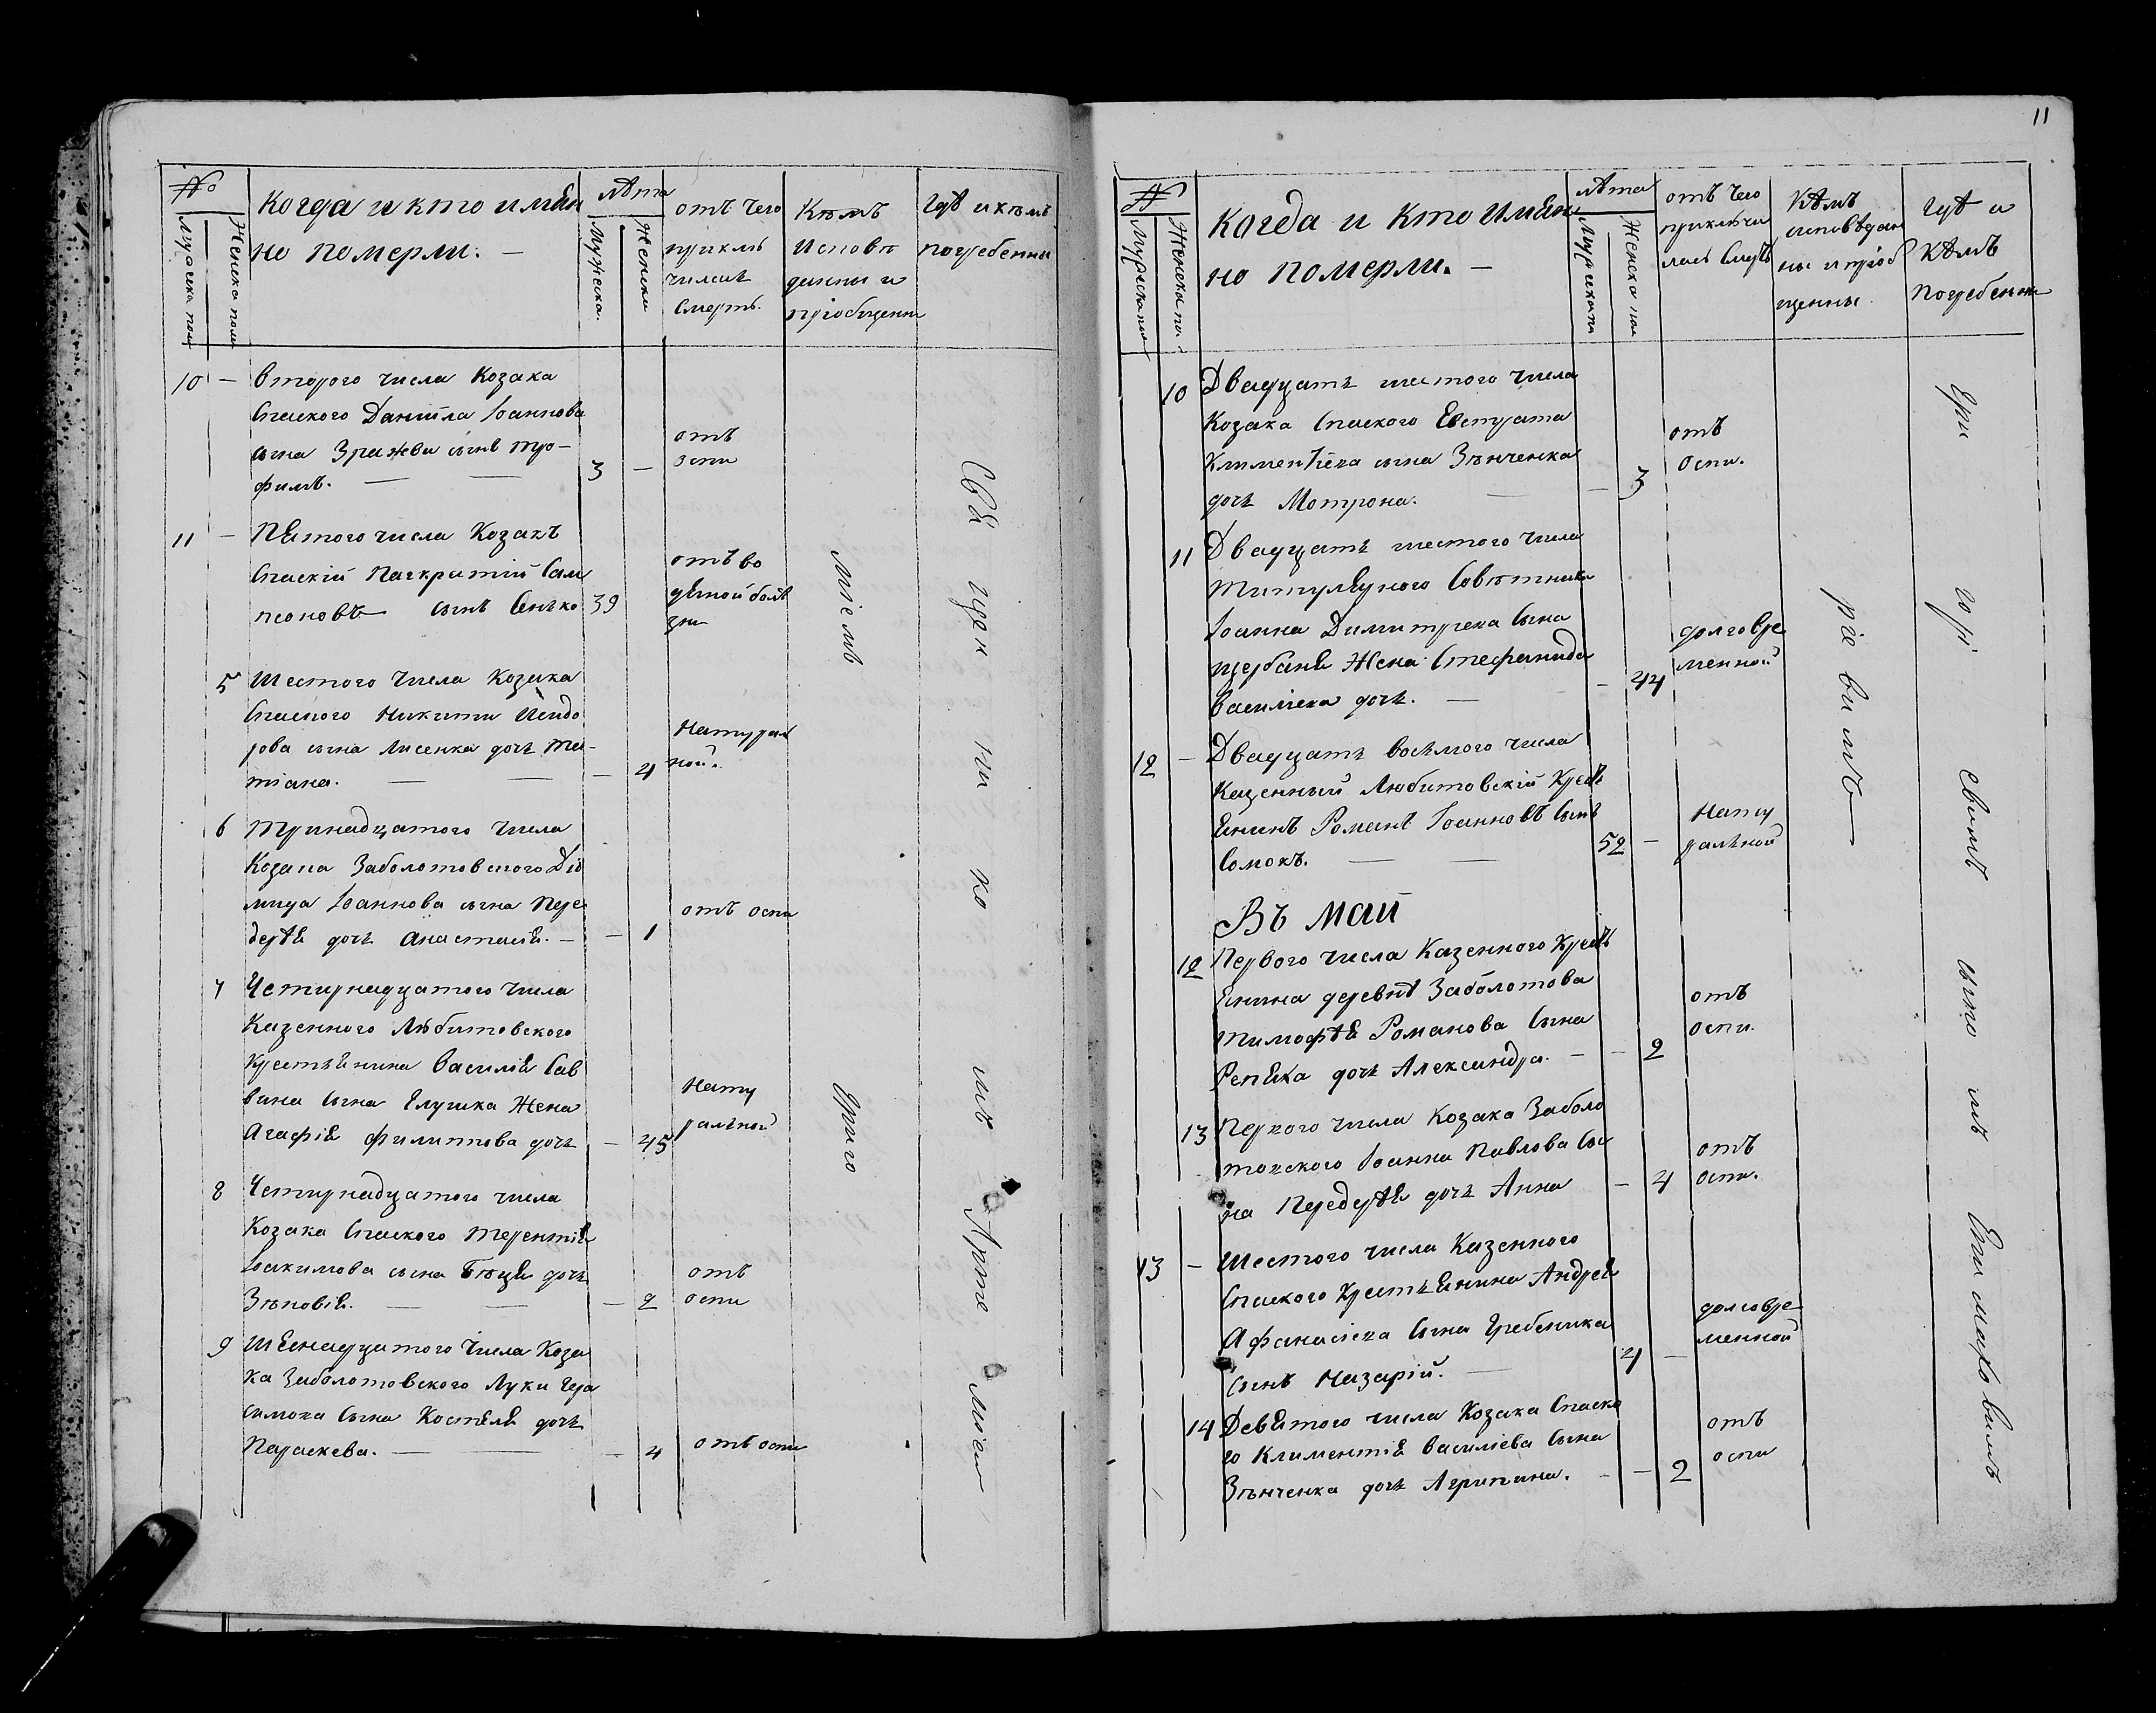 №
Мужеска пола
Женска пола
когда и кто имян
но померли. —
лѣта
Мужеска.
Женска
отъ чего
приклю
чилась
смерть.
Кѣмъ
исповѣ
данны и
пріобщенны
гдѣ и кѣмъ
погребенны
10 — второго числа Козака
Спаского Даніила Іоаннова
сына Зражева сынъ Тро-
фимъ. — — 3 —
отъ
оспи
11 — Пятого числа Козакъ
Спаскій Панкратій Сам
псоновъ сынъ Сенько 39
отъ во
дяной болѣ
зни
5 шестого числа Козака
Спаского Никити Исидо
рова сына Лисенка дочь Та-
тіана. — — — 4
Натурал
ной.
6 тринадцатого числа
Козака Заболотовского Діо
мида Іоаннова сына Пере
дерѣя дочь Анастасія. — — 1
отъ оспи
7 Четирнадцатого числа
Казенного Любитовского
крестьянина Василія Сав
вина сына Глушка жена
Агафія Филиппова дочь — 45
Нату
ральной
8 Четирнадцатого числа
Козака Спаского Терентія
Іоакимова сына дочь
Зѣновія. — — — 2
отъ
оспи
9 числа Коза
ка Заболотовского Луки Гера
симова сына Костеля дочь
Параскева. — — — 4
отъ оспи
мъ Арте
11
№
Мужеска пола
Женска по
когда и кто имян
но померли. —
лѣта
Мужеска по
Женска пол
отъ чего
приключи
лась смерть
Кѣмъ
исповѣдан
ны и пріоб
щенны
гдѣ и
кѣмъ
погребенны
10 Двадцать шестого числа
Козака Спаского Евстрата
Климентіева сына Зѣнченка
дочь Мотрона. — — 3
отъ
оспи.
11 Двадцать шестого числа
Титулярного Совѣтника
Іоанна Димитріева сына
жена Стефанида
Василіева дочь. — — 44
долговре
менной
12 — Двадцать восьмого числа
Казенный Любитовскій Кресть
янинъ Романъ Іоанновъ сынъ
Сомокъ. — — 52 —
Нату
ральной
Въ май
12 Первого числа Казенного Кресть
янина деревнѣ Заболотова
Тимофѣя Романова сына
Репяха дочь Александра. — — 2
отъ
оспи.
13 Первого числа Козака Заболо
товского Іоанна Павлова сы
на Передерѣя дочь Анна — 4
отъ
оспи.
13 — Шестого числа Казенного
Спаского Крестьянина Андрея
Афанасіева сына Гребеника
сынъ Назарій. — 4 —
долговре
менной
14 Девятого числа Козака Спаско
го Климентія Василіева сына
Зѣнченка дочь Агрипина. — — 2
отъ
оспи